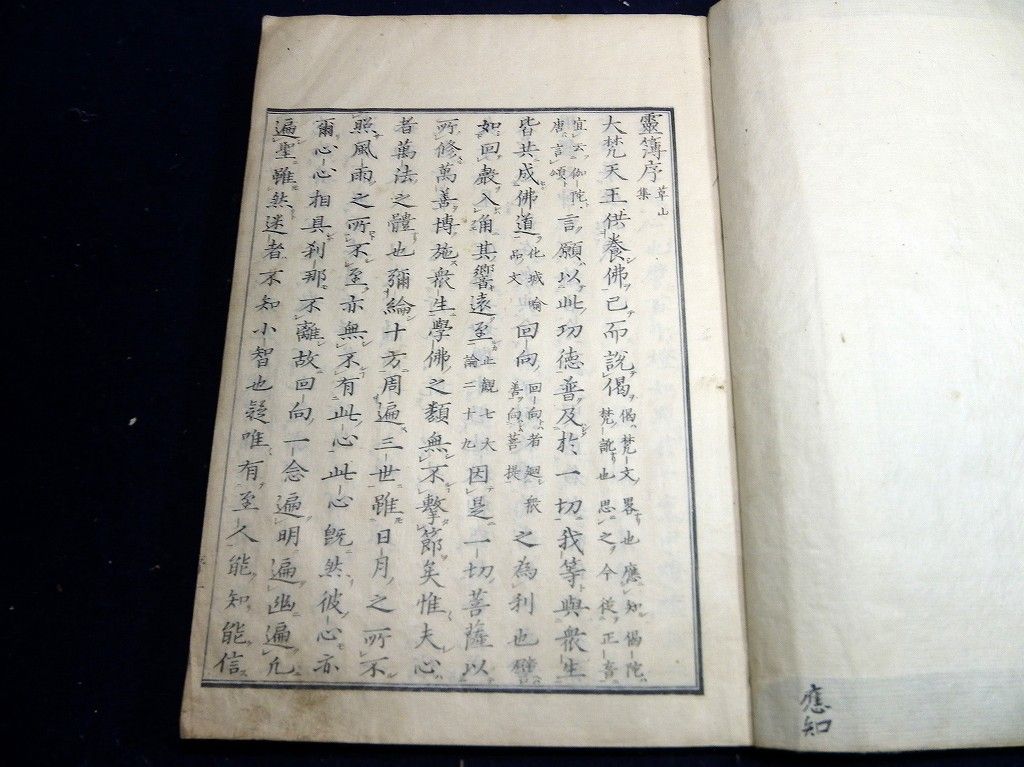 應知
靈簿序 草山集
大梵天王供養佛已而說偈 偈梵文畧也應知偈陀梵訛也思之今從正音
宜云伽陀唐言頌 言願以此功德普及於一切我等與衆生
皆共成佛道 化城喻品文 回向 回向者廻衆善向菩提 之為利也譬
如回聲入角其響遠至 止觀七大論二十九 因是一切菩薩以
所修萬善博施衆生學佛之類無不擊節矣惟夫心
者萬法之體也彌綸十方周遍三世雖日月之所不
照風雨之所不至亦無不有此心此心既然彼心亦
爾心心相具刹那不離故回向一念遍明遍幽遍凡
遍聖雖然迷者不知小智也疑唯有至人能知能信